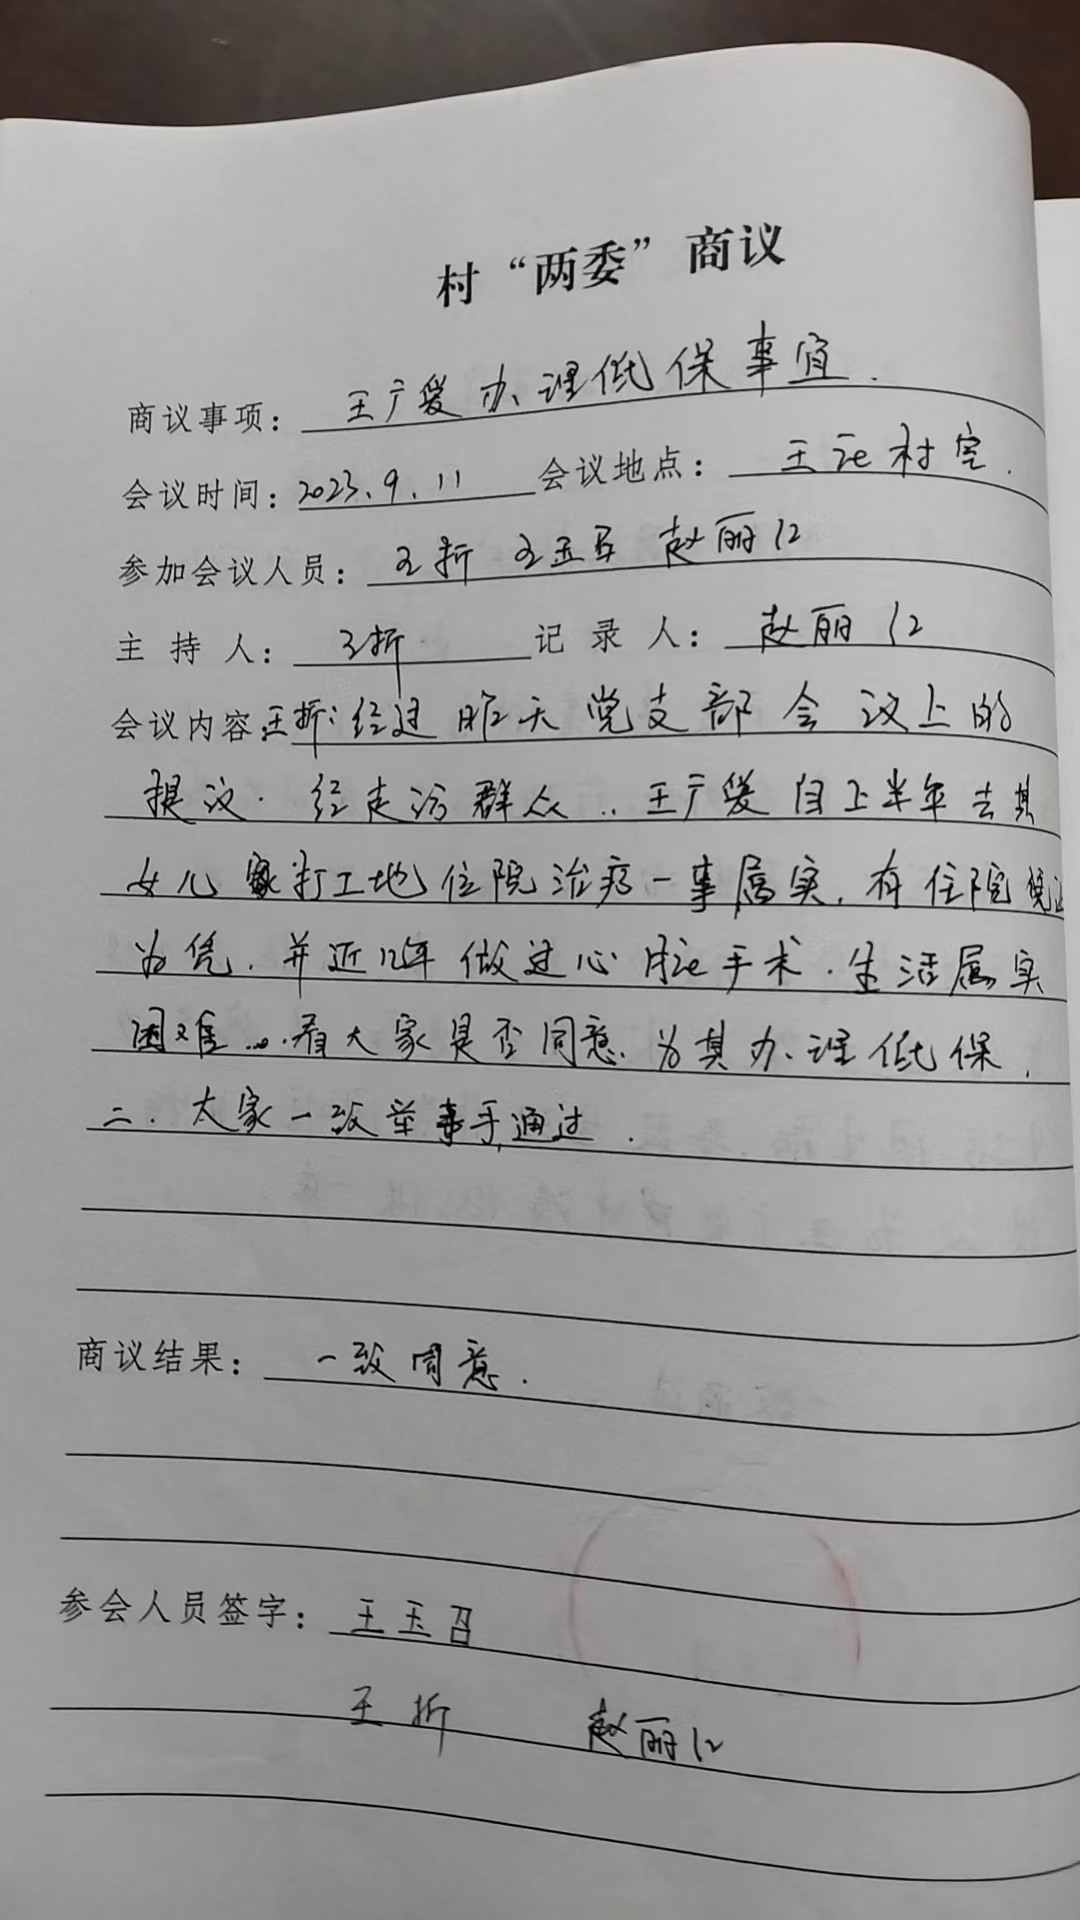 村“两委”商议
商议事项: 王广爱办理低保事宜.
会议时间: 2023.9.11 会议地点: 王 村室.
参加会议人员: 王折 王玉召 赵丽红
主持人: 王折 记录人: 赵丽红
会议内容: 王折: 经过昨天党支部会议上的
提议. 经走访群众.. 王广爱自上半年去其
女儿家打工地住院治疗一事属实. 有住院凭证
为凭. 并近几年做过心脏手术. 生活属实
困难... 看大家是否同意为其办理低保.
二. 大家一致举手通过.
商议结果: 一致同意.
参会人员签字: 王玉召
王折 赵丽红